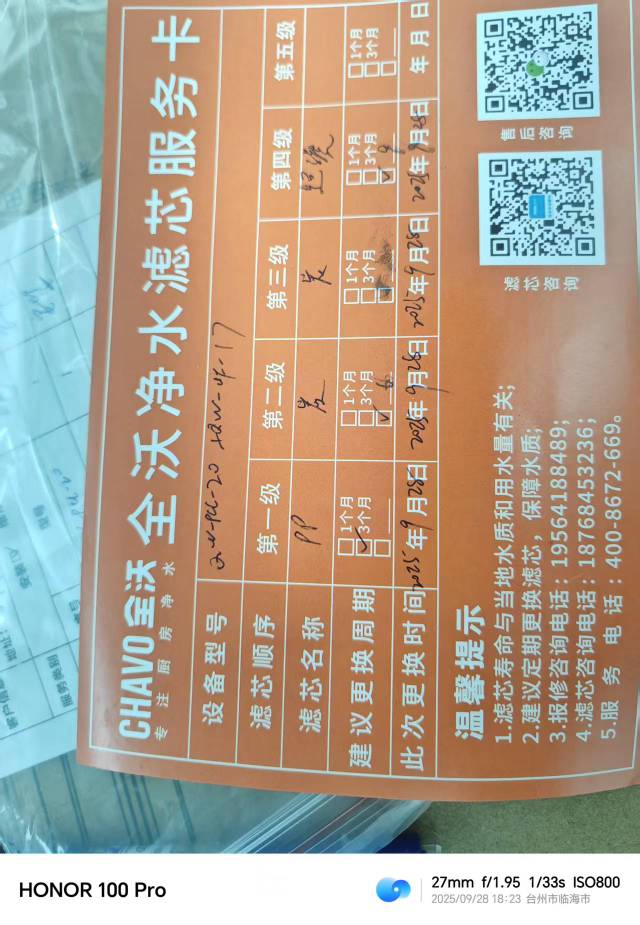 CHAVO全沃 全沃净水滤芯服务卡
专注厨房净水
设备型号
滤芯顺序 第一级 第二级 第三级 第四级 第五级
滤芯名称 PP 炭 炭
建议更换周期 □1个月 □1个月 □1个月 □1个月 □1个月
☑3个月 □3个月 □3个月 □3个月 □3个月
□ ☑ 6 □ ☑ 9 □
此次更换时间 2025年9月28日 2025年9月28日 2025年9月28日 2025年9月28日 年月日
温馨提示
1.滤芯寿命与当地水质和用水量有关;
2.建议定期更换滤芯，保障水质;
3.报修咨询电话：19564188489;
4.滤芯咨询电话：18768453236;
5.服务电话：400-8672-669。
滤芯咨询
售后咨询
客户信息
地址:
服务类别
安装
HONOR 100 Pro
27mm f/1.95 1/33s ISO800
2025/09/28 18:23 台州市临海市